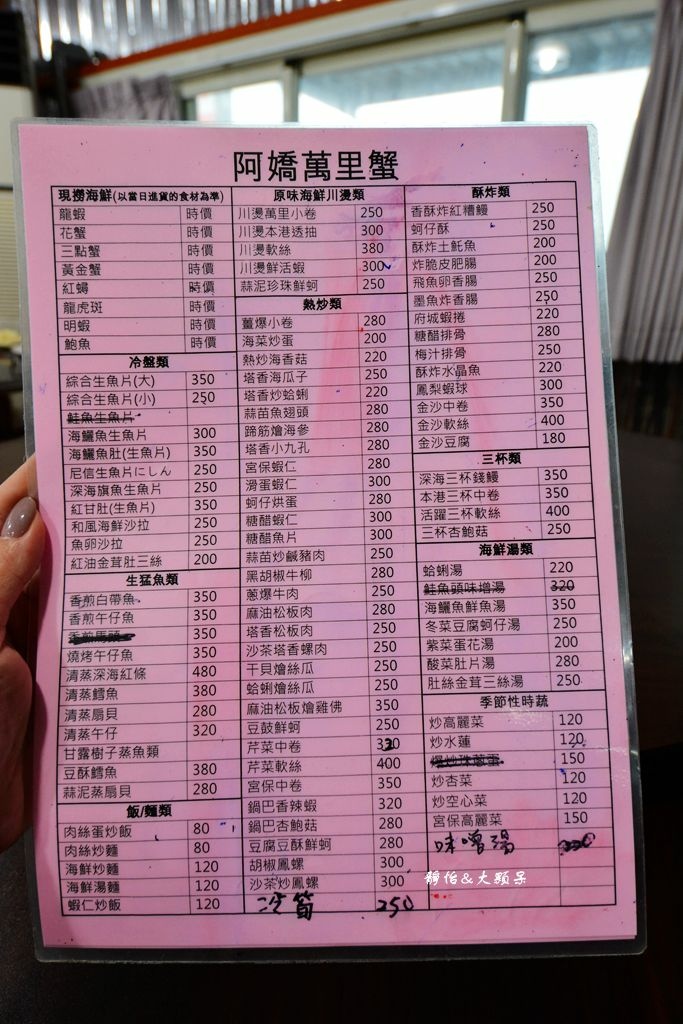 阿嬌萬里蟹
現撈海鮮(以當日進貨的食材為準)
龍蝦 時價
花蟹 時價
三點蟹 時價
黃金蟹 時價
紅蟳 時價
龍虎斑 時價
明蝦 時價
鮑魚 時價
冷盤類
綜合生魚片(大) 350
綜合生魚片(小) 250
鮭魚生魚片
海鱺魚生魚片 300
海鱺魚肚(生魚片) 350
尼信生魚片にしん 250
深海旗魚生魚片 250
紅甘肚(生魚片) 350
和風海鮮沙拉 250
魚卵沙拉 250
紅油金茸肚三絲 200
生猛魚類
香煎白帶魚 350
香煎午仔魚 350
香煎馬頭 350
燒烤午仔魚 350
清蒸深海紅條 480
清蒸鱈魚 380
清蒸扇貝 280
清蒸午仔 320
甘露樹子蒸魚類
豆酥鱈魚 380
蒜泥蒸扇貝 280
飯/麵類
肉絲蛋炒飯 80
肉絲炒麵 80
海鮮炒麵 120
海鮮湯麵 120
蝦仁炒飯 120
原味海鮮川燙類
川燙萬里小卷 250
川燙本港透抽 300
川燙軟絲 380
川燙鮮活蝦 300
蒜泥珍珠鮮蚵 250
熱炒類
薑爆小卷 280
海菜炒蛋 200
熱炒海香菇 220
塔香海瓜子 250
塔香炒蛤蜊 220
蒜苗魚翅頭 280
蹄筋燴海參 280
塔香小九孔 280
宮保蝦仁 280
滑蛋蝦仁 300
蚵仔烘蛋 280
糖醋蝦仁 300
糖醋魚片 300
蒜苗炒鹹豬肉 250
黑胡椒牛柳 280
蔥爆牛肉 250
麻油松板肉 280
塔香松板肉 250
沙茶塔香螺肉 250
干貝燴絲瓜 250
蛤蜊燴絲瓜 250
麻油松板燴雞佛 350
豆鼓鮮蚵 250
芹菜中卷
芹菜軟絲 400
宮保中卷 350
鍋巴香辣蝦 320
鍋巴杏鮑菇 280
豆腐豆酥鮮蚵 280
胡椒鳳螺 300
沙茶炒鳳螺 300
冷筍 250
酥炸類
香酥炸紅糟鰻 250
蚵仔酥 250
酥炸土魠魚 200
炸脆皮肥腸 200
飛魚卵香腸 250
墨魚炸香腸 250
府城蝦捲 220
糖醋排骨 280
梅汁排骨 250
酥炸水晶魚 220
鳳梨蝦球 300
金沙中卷 350
金沙軟絲 400
金沙豆腐 180
三杯類
深海三杯錢鰻 350
本港三杯中卷 350
活躍三杯軟絲 400
三杯杏鮑菇 250
海鮮湯類
蛤蜊湯 220
鮭魚頭味增湯 320
海鱺魚鮮魚湯 350
冬菜豆腐蚵仔湯 250
紫菜蛋花湯 200
酸菜肚片湯 280
肚絲金茸三絲湯 250
季節性時蔬
炒高麗菜 120
炒水蓮 120
150
炒杏菜 120
炒空心菜 120
宮保高麗菜 150
味噌湯
靜怡&大顆呆